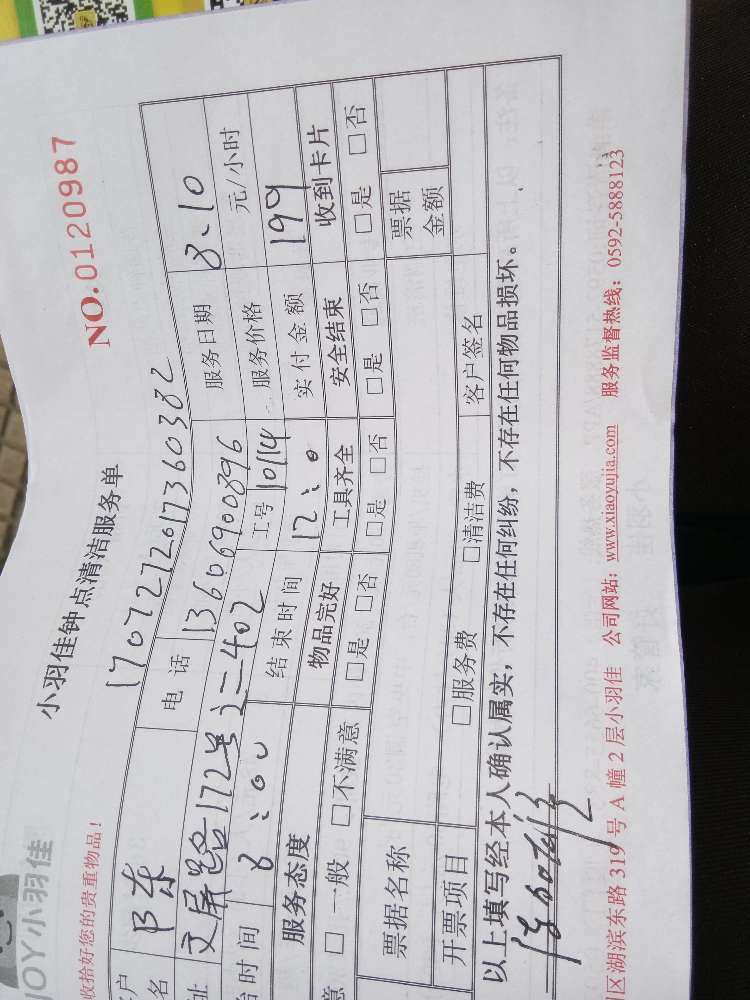 JOY小羽佳
小羽佳钟点清洁服务单
NO.0120987
收拾好您的贵重物品！
1707272017360382
户 陈 电 话 13606900896 服务日期 8.10
名
址 文屏路172号之二402 服务价格 元/小时
时间 8:00 结束时间 12:0 工号 10114 实付金额 199
服务态度 物品完好 工具齐全 安全结束 收到卡片
意 □一般 □不满意 □是 □否 □是 □否 □是 □否 □是 □否
票据名称 票据金额
开票项目 □服务费 □清洁费 客户签名
以上填写经本人确认属实，不存在任何纠纷，不存在任何物品损坏。
区湖滨东路 319 号 A 幢 2 层小羽佳 公司网站：www.xiaoyujia.com 服务监督热线：0592-5888123